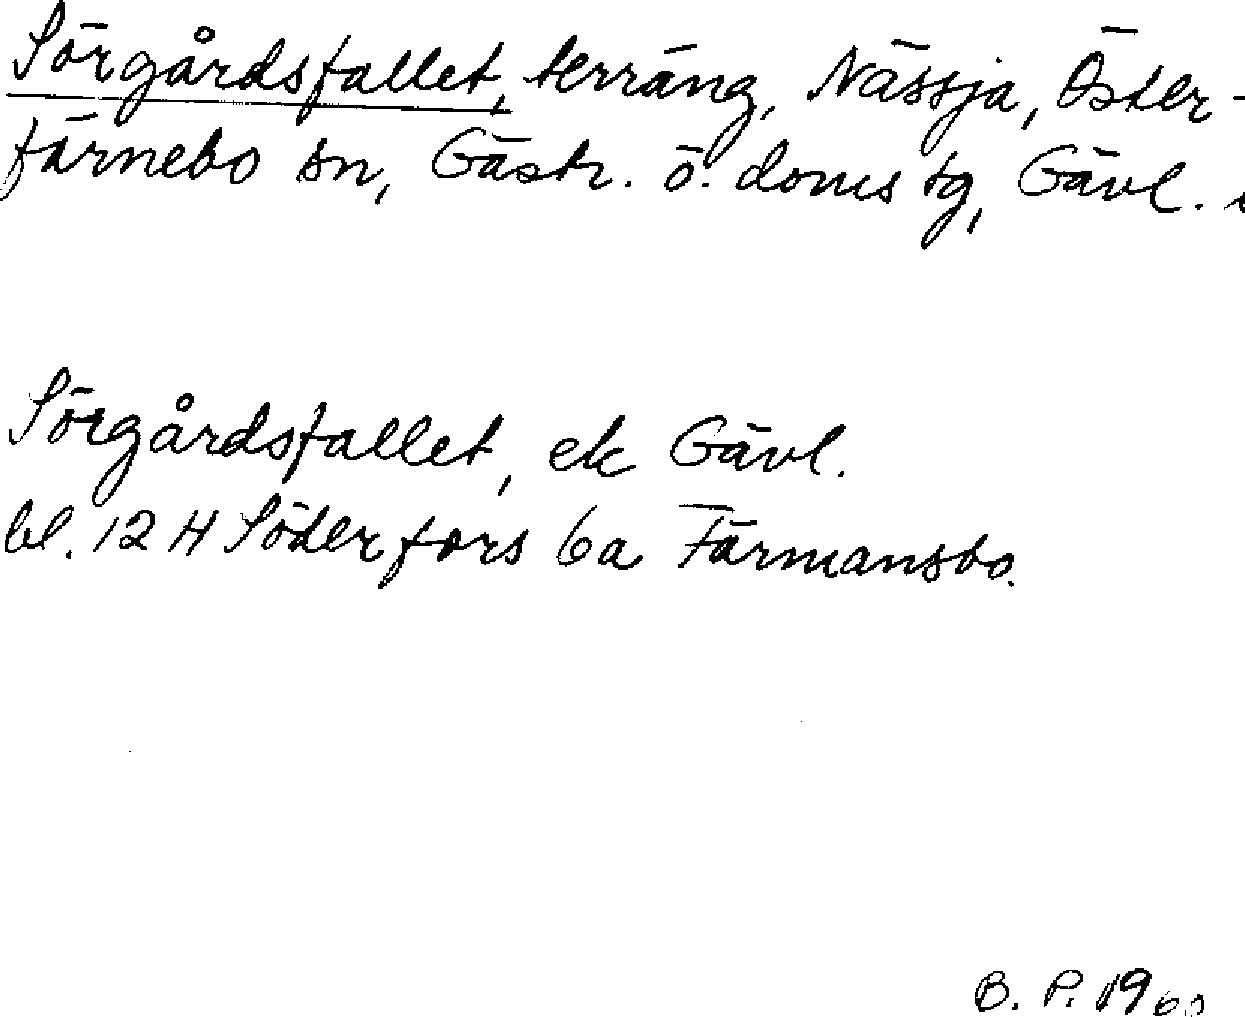 Sörgårdsfallet, terräng, Nässja, Öster-
färnebo sn, Gästr. ö. doms tg, Gävl.
Sörgårdsfallet, ek Gävl.
bl. 12 H Söderfors 6a Färmansbo.
B. P. 1960